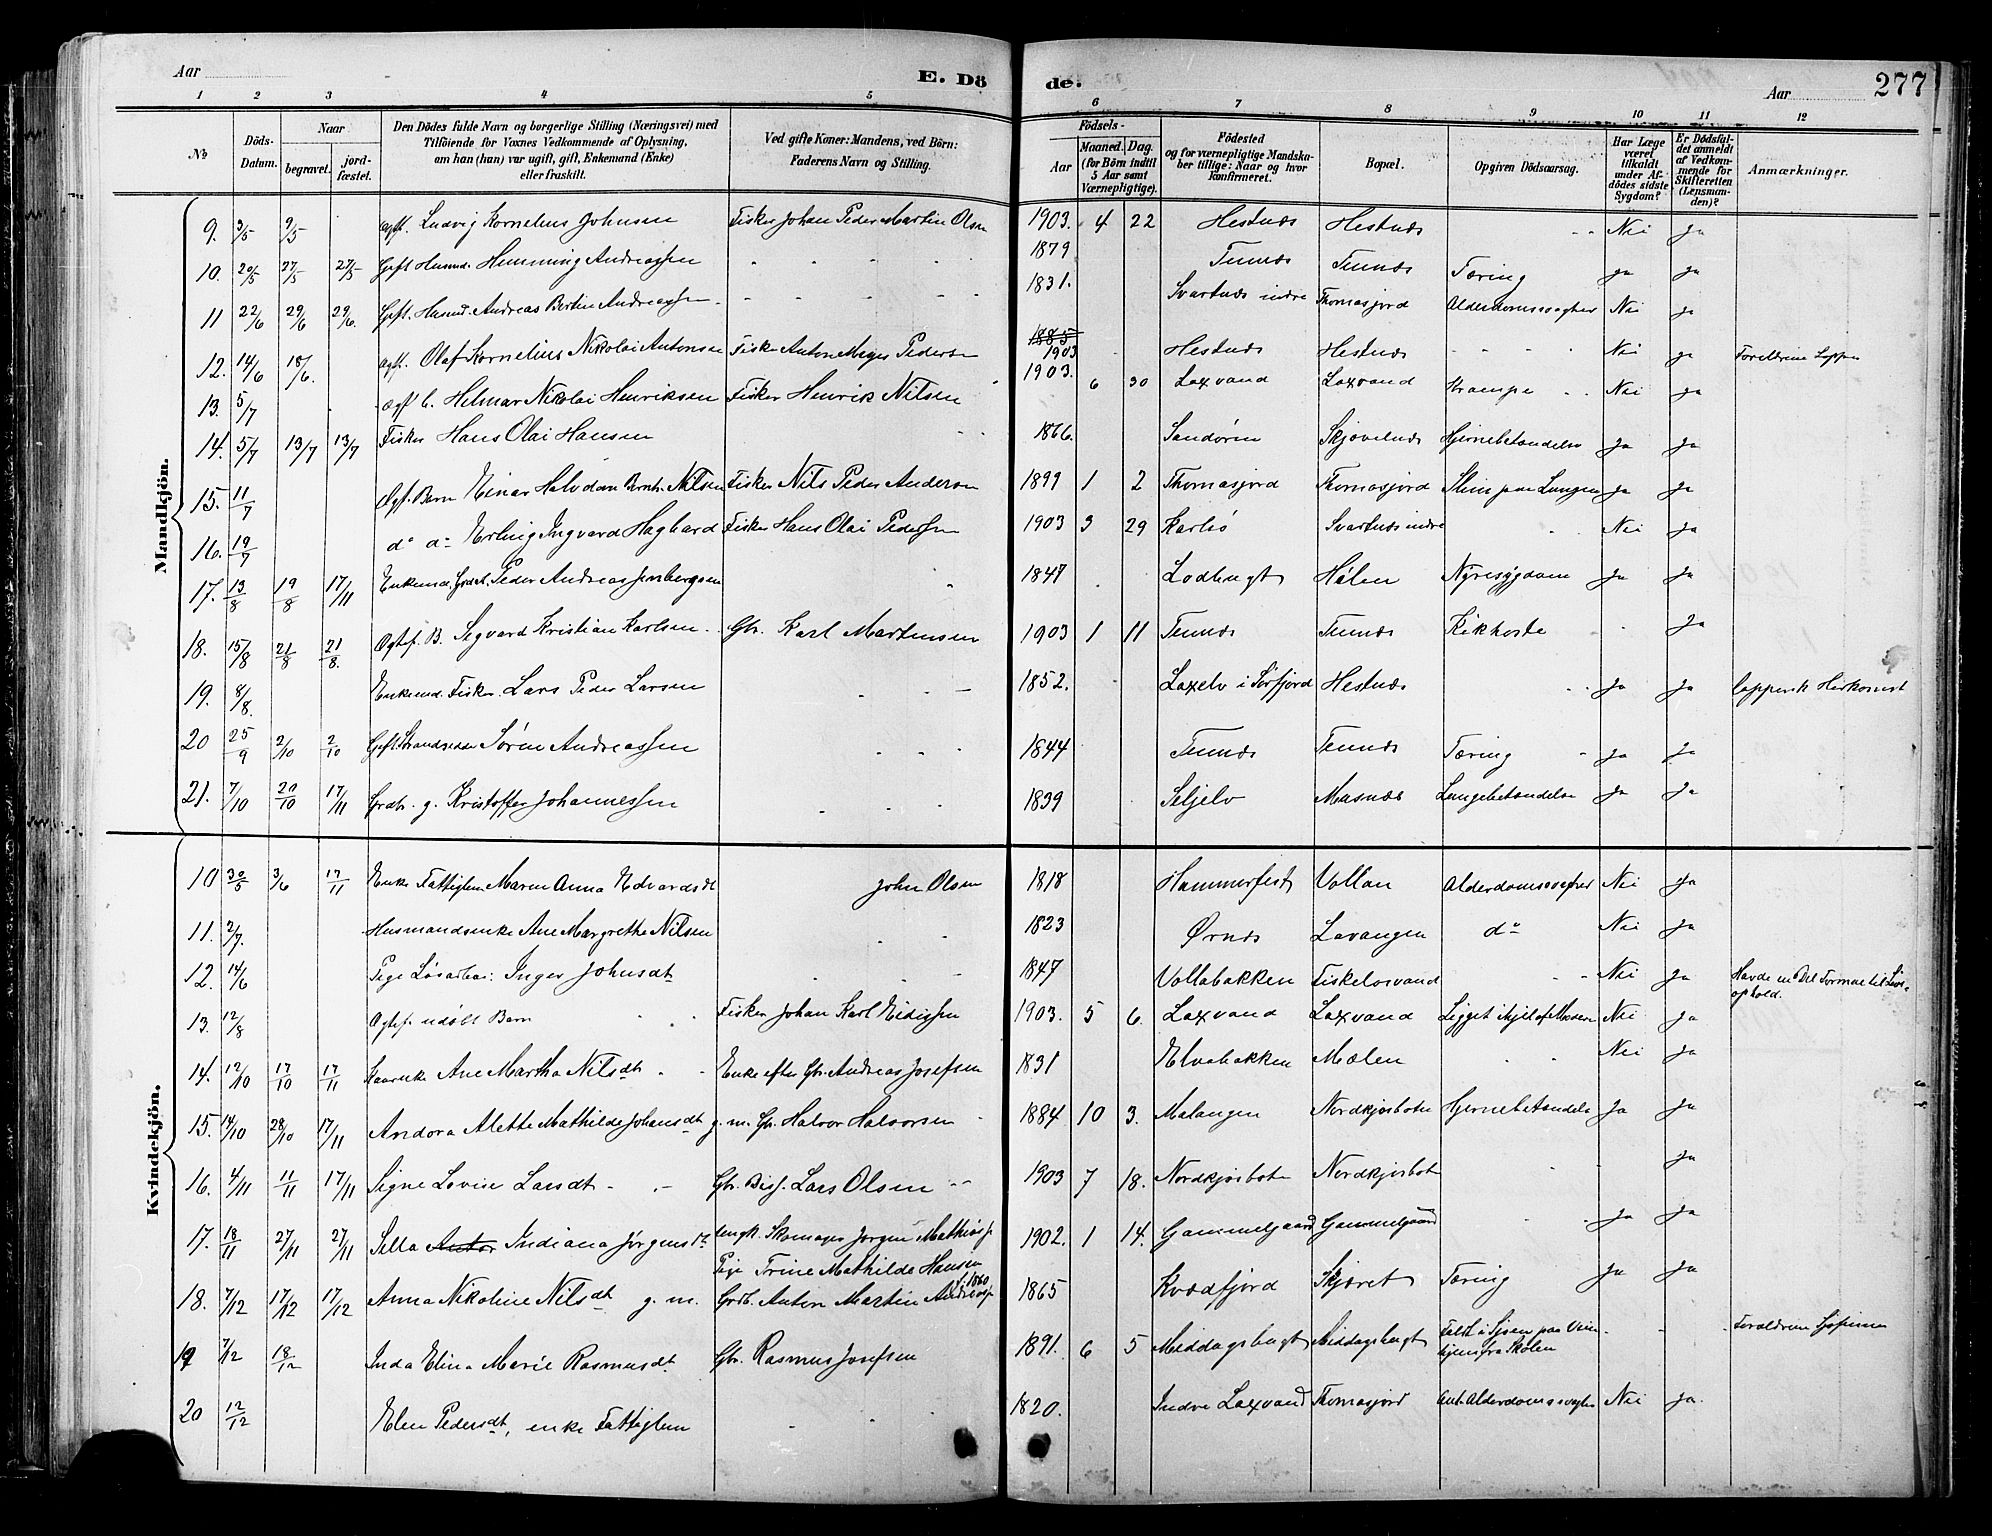 Aar E. Dö de. Aar 277
1 2 3 4 5 6 7 8 9 10 11 12
№ Döds-Datum. Naar begravet. jord-fæstet. Den Dödes fulde Navn og borgerlige Stilling (Næringsvei) med Tilföiende for Voxnes Vedkommende af Oplysning, om han (hun) var ugift, gift, Enkemand (Enke) eller fraskilt. Ved gifte Koner: Mandens, ved Börn: Faderens Navn og Stilling. Födsels- Aar Maaned. Dag. (for Börn indtil 5 Aar samt Værnepligtige). Födested og for værnepligtige Mandskaber tillige: Naar og hvor konfirmeret. Bopæl. Opgiven Dödsaarsag. Har Læge været tilkaldt under Afdödes sidste Sygdom? Er Dödsfaldet anmeldt af Vedkommende for Skifteretten (Lensmanden)? Anmærkninger.
Mandkjön.
9. 3/5 9/5 Ægtf. Ludvig Kornelius Johnsen Fisker Johan Peder Martin Olsen 1903. 4 22 Hestnæs Hestnæs Nei Ja
10. 20/5 27/5 27/5 Gift Husmd. Hemming Andreassen 1879 Tennæs Tennæs Tæring Ja Ja
11 22/6 29/6 29/6. Gift. Husmd. Andreas Bertin Andreassen 1831. Svartnæs indre Thomasjord Alderdomssvaghed Nei Ja
12. 14/6 18/6. Ægtf. Olaf Kornelius Nikolai Antonsen Fisker Anton Meyer Pedersen 1885 1903 Hestnæs Hestnæs Nei Ja Forældrene Lapper
13. 5/7 Ægtf. b. Helmar Nikolai Henriksen Fisker Henrik Nilsen 1903. 6 30 Laxvand Laxvand Krampe Nei Ja
14. 5/7 13/7 13/7 Fisker Hans Olai Hansen 1866. Sandøren Skjævelnæs Hjernebetændelse Ja Ja
15. 11/7 Ægtf. Barn Einar Halvdan Bernh. Nilsen Fisker Nils Peder Andersen 1899 1 2 Thomasjord Thomasjord Slim paa Lungen Ja Ja
16. 19/7 do do Erling Ingvard Hagbard Fisker Hans Olai Pedersen 1903 3 29 Karlsö Svartnæs indre Nei Ja
17. 13/8 19/8 17/11 Enkemd. Grdbr. Peder Andreas Jensbergsen 1847 Lodbugt Hølen Nyresygdom Ja Ja
18. 15/8 21/8 21/8. Ægtef. B. Segvard Kristian Karlsen Gbr. Karl Martinsen 1903 1 11 Tennæs Tennæs Kikhoste Ja
19. 8/8. Enkemd. Fisker Lars Peder Larsen 1852. Laxelv i Sørfjord Hestnæs Ja Ja Lappisk Herkomst
20 25/9 2/10 2/10 Gift Strandsidder Sørine Andreassen 1844 Tennæs Tennæs Tæring Ja Ja
21. 7/10 20/10 17/11 Grdbr. g. Kristoffer Johannessen 1839 Seljelv Masnæs Lungebetændelse Ja Ja
Kvindekjön.
10 30/5 3/6 17/11 Enke Fattiglem Maren Anna Edvardsdt John Olsen 1818 Hammerfest Vollan Alderdomssvaghed Nei Ja
11. 2/7. Husmandsenke Ane Margrethe Nilsen 1823 Ørnæs Lavangen do Nei Ja
12. 14/6 Pige Løsarbei: Inger Johnsdt 1847 Vollabakken Fiskelosvand Nei Ja Havde en Del Formue til Livsophold.
13. 12/8 Ægtef. udøbt Barn Fisker Johan Karl Eidissen 1903. 5 6. Laxvand Laxvand Ligget ihjel af Moderen Nei Ja
14. 12/10 17/10 17/11 Kaarenke Ane Martha Nilsdt Enke efter Gbr. Andreas Josefsen 1831 Elvebakken Mælen Nei Ja
15. 14/10 28/10 17/11 Andora Alette Mathilde Johansdt g. m. Gbr. Halvor Halvorsen 1884 10 3. Malangen Nordkjosbotn Hjernebetændelse Ja Ja
16. 4/11 11/11 17/11 Signe Lovise Larsdt Gbr. Biss. Lars Olsen 1903 7 18. Nordkjosbotn Nordkjosbotn Ja
17. 18/11 27/11 27/11 Sella Antor Indiana Jørgensdt. Ungk. Skomager Jørgen Mathiass. Pige Trine Mathilde Hansen 1902. 1 14. Gammelgaard Gammelgaard Ja Ja
18. 7/12 17/12 17/12 Anna Nikoline Nilsdt g. m. Grdb. Anton Martin Andreass. f. 1860 1865 Kvædfjord Skjæret Tæring Ja Ja
19 7/12 18/12 Inda Elina Marie Rasmusdt. Gbr. Rasmus Josefsen 1891. 6 5 Middagsbugt Middagsbugt Faldt i Sjøen paa Vei hjem fra Skolen Forældrene Sjøfinner
20 12/12 Elen Pedersdt, enke Fattiglem 1820. Indre Laxvand Thomasjord Ant. Alderdomssvaghed Nei Ja.